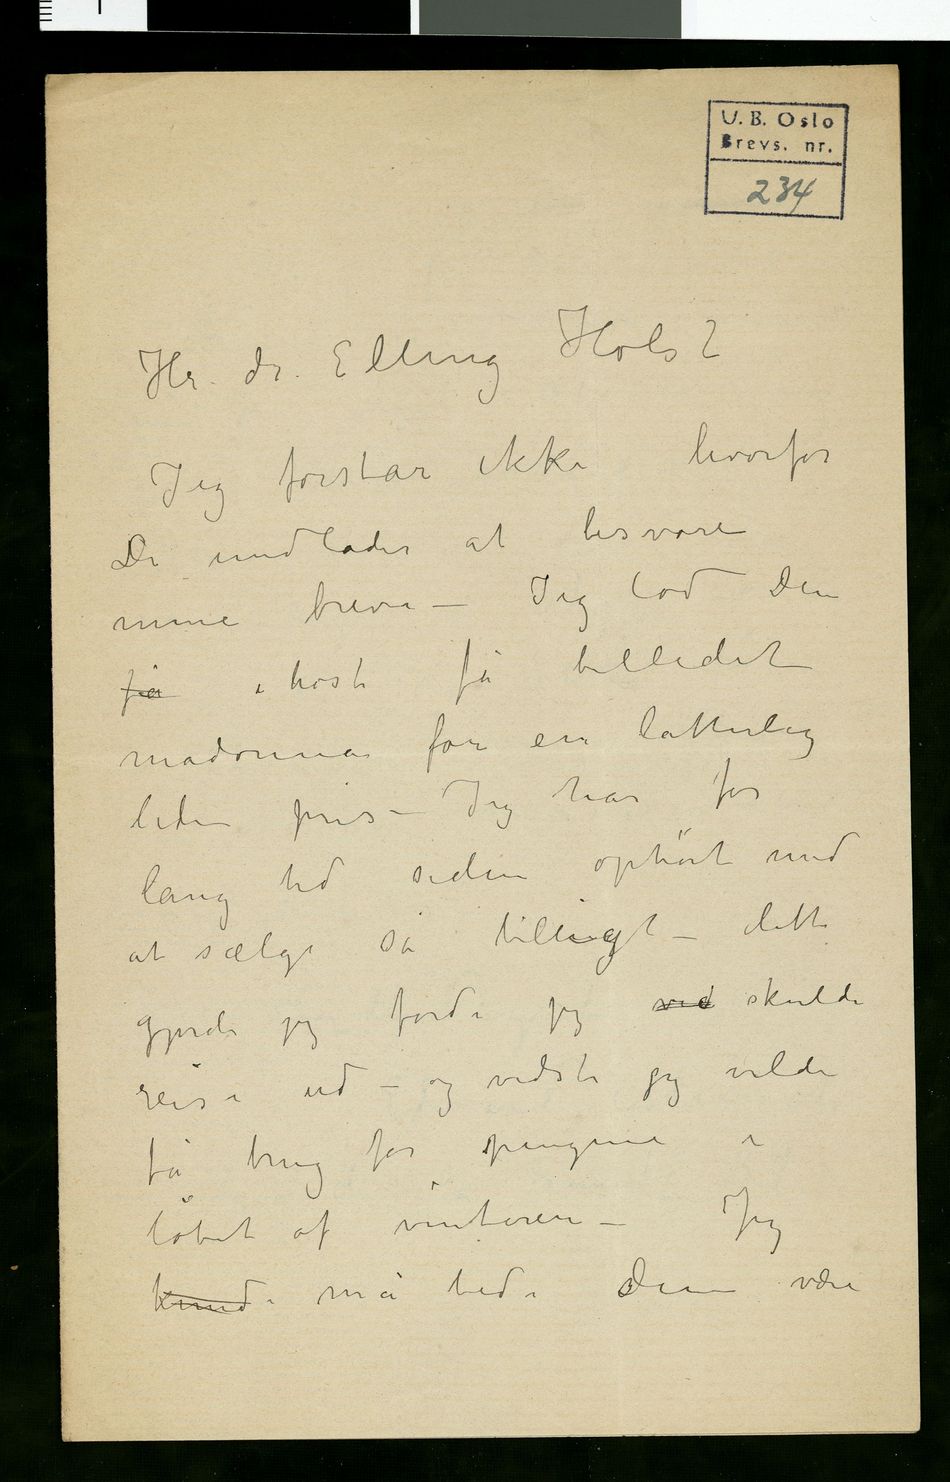 U. B. Oslo
Brevs. nr.
234
Hr. dr. Elling Holst
Jeg forstår ikke hvorfor
De undlader at besvare
mine breve – Jeg lod Dem
få i høst få billedet
madonna for en latterlig
liden pris – Jeg har for
lang tid siden ophört med
at sælge så billigt – dette
gjorde jeg fordi jeg ved skulde
reise ud – og vidste jeg vilde
få brug for pengene i
löbet af vinteren – Jeg
kunde må bede Dem være